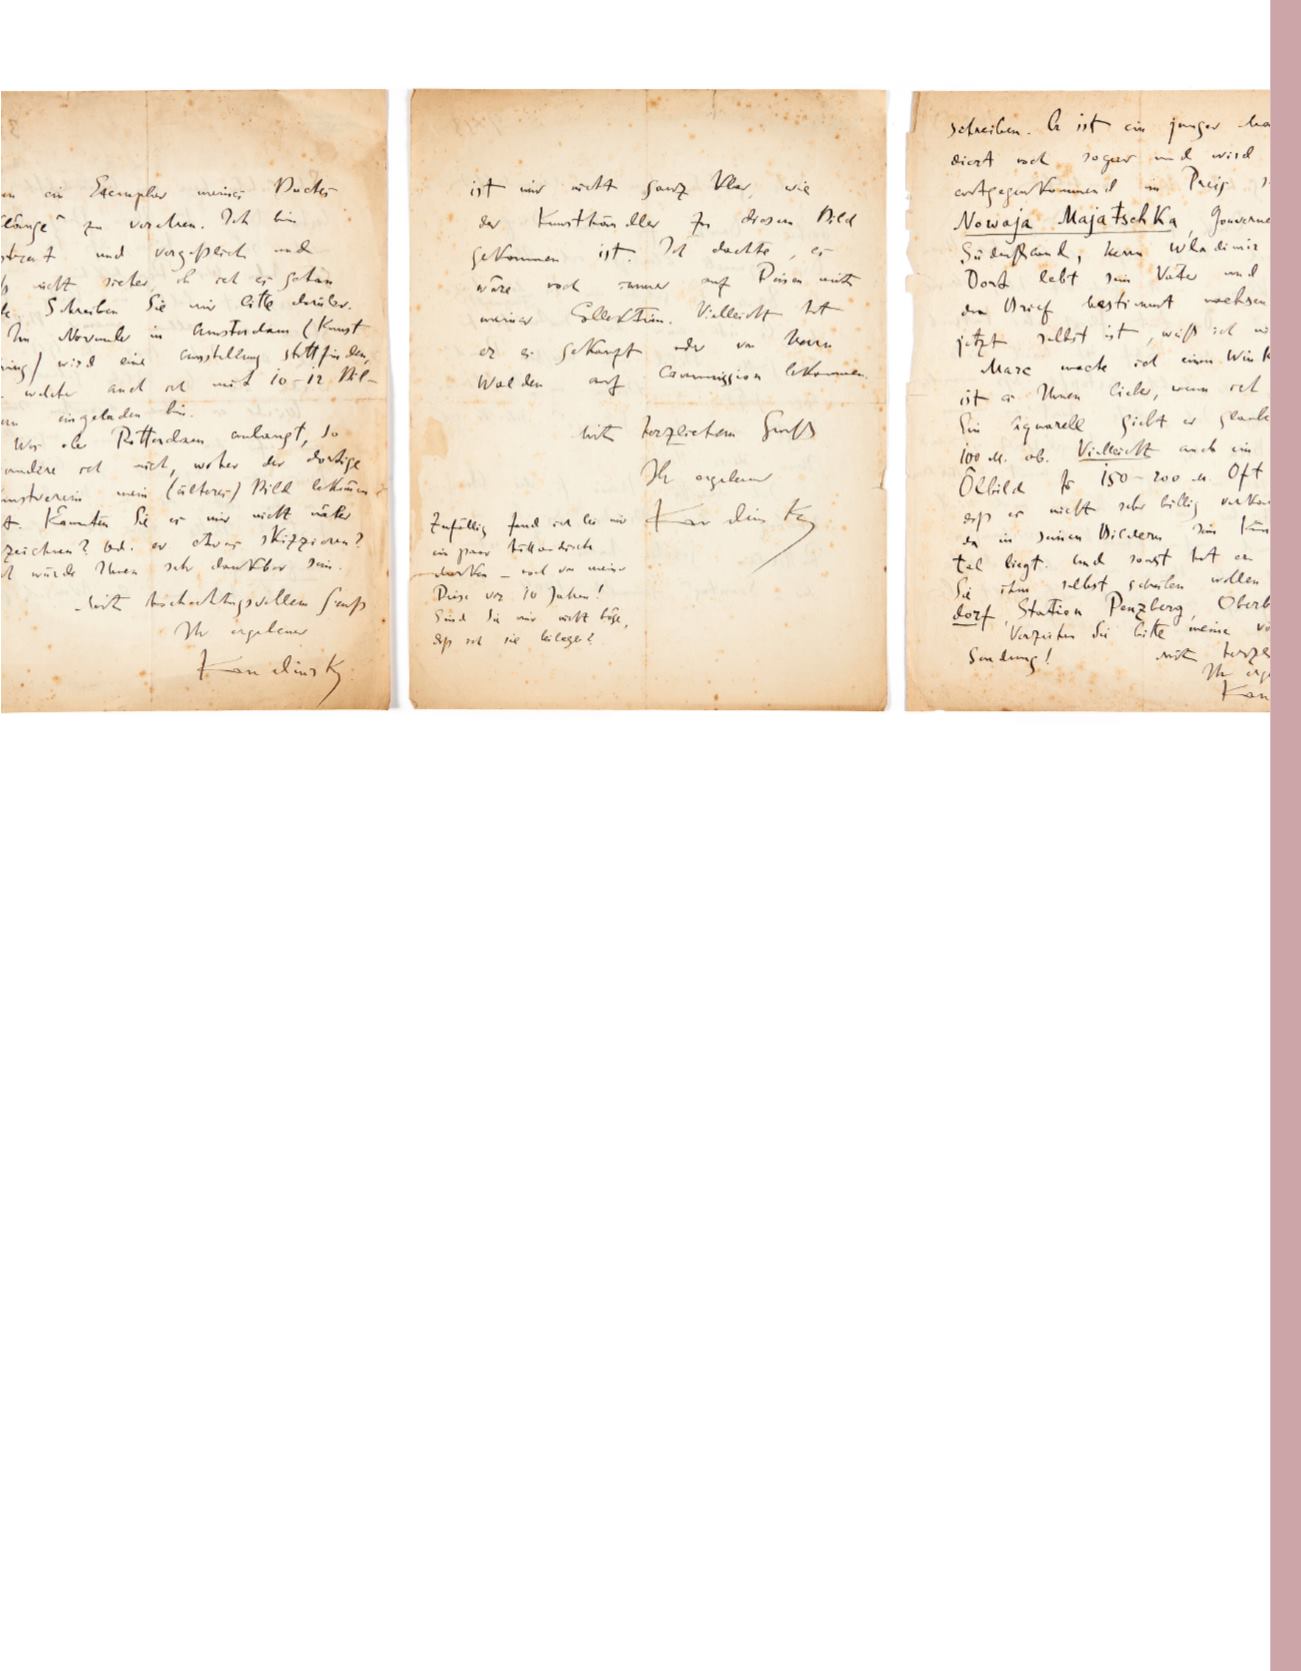 ein Exemplar meines Buches
Klänge“ zu versehen. Ich bin
und vergeßlich und
nicht sicher, ob ich es getan
Schreiben Sie mir bitte darüber.
Im November in Amsterdam (Kunst
wird eine Ausstellung stattfinden,
welcher auch ich mit 10–12 Bil-
eingeladen bin.
Was die Rotterdam anlangt, so
ich mich, woher der dortige
mein (älteres) Bild bekommen
Könnten Sie es mir nicht näher
bezeichnen? od. es etwas skizzieren?
würde Ihnen sehr dankbar sein.
Mit hochachtungsvollem Gruß
Ihr ergebener
Kandinsky
ist mir nicht ganz klar, wie
der Kunsthändler zu diesem Bild
gekommen ist. Ich dachte, es
wäre noch immer auf Reisen mit
meiner Collektion. Vielleicht hat
er es gekauft oder von Herrn
Walden auf Commission bekommen.
Mit herzlichem Gruß
Ihr ergebener
Kandinsky
Zufällig fand ich bei mir
ein paar holländische
Marken – noch von meiner
Reise vor 10 Jahren!
Sind Sie mir nicht böse,
daß ich sie beilege?
schreiben. Er ist ein junger
dient noch sogar und wird
entgegenkommend im Preis
Nowaja Majatschka, Gouverne
Südrußland, Herrn Wladimir
Dort lebt sein Vater und
den Brief bestimmt
jetzt selbst ist, weiß ich
Marc mache ich einen Wink
ist es Ihnen lieber, wenn ich
Ein Aquarell giebt er
100 M. ab. Vielleicht auch ein
Ölbild für 150–200 M. Oft
daß er nicht sehr billig
da in seinen Bildern sein
liegt. Und sonst hat er
Sie ihm selbst schreiben wollen
dorf, Station Penzberg, Oberb
Verzeihen Sie bitte meine
Sendung! Mit herzl
Ihr erg
Kan